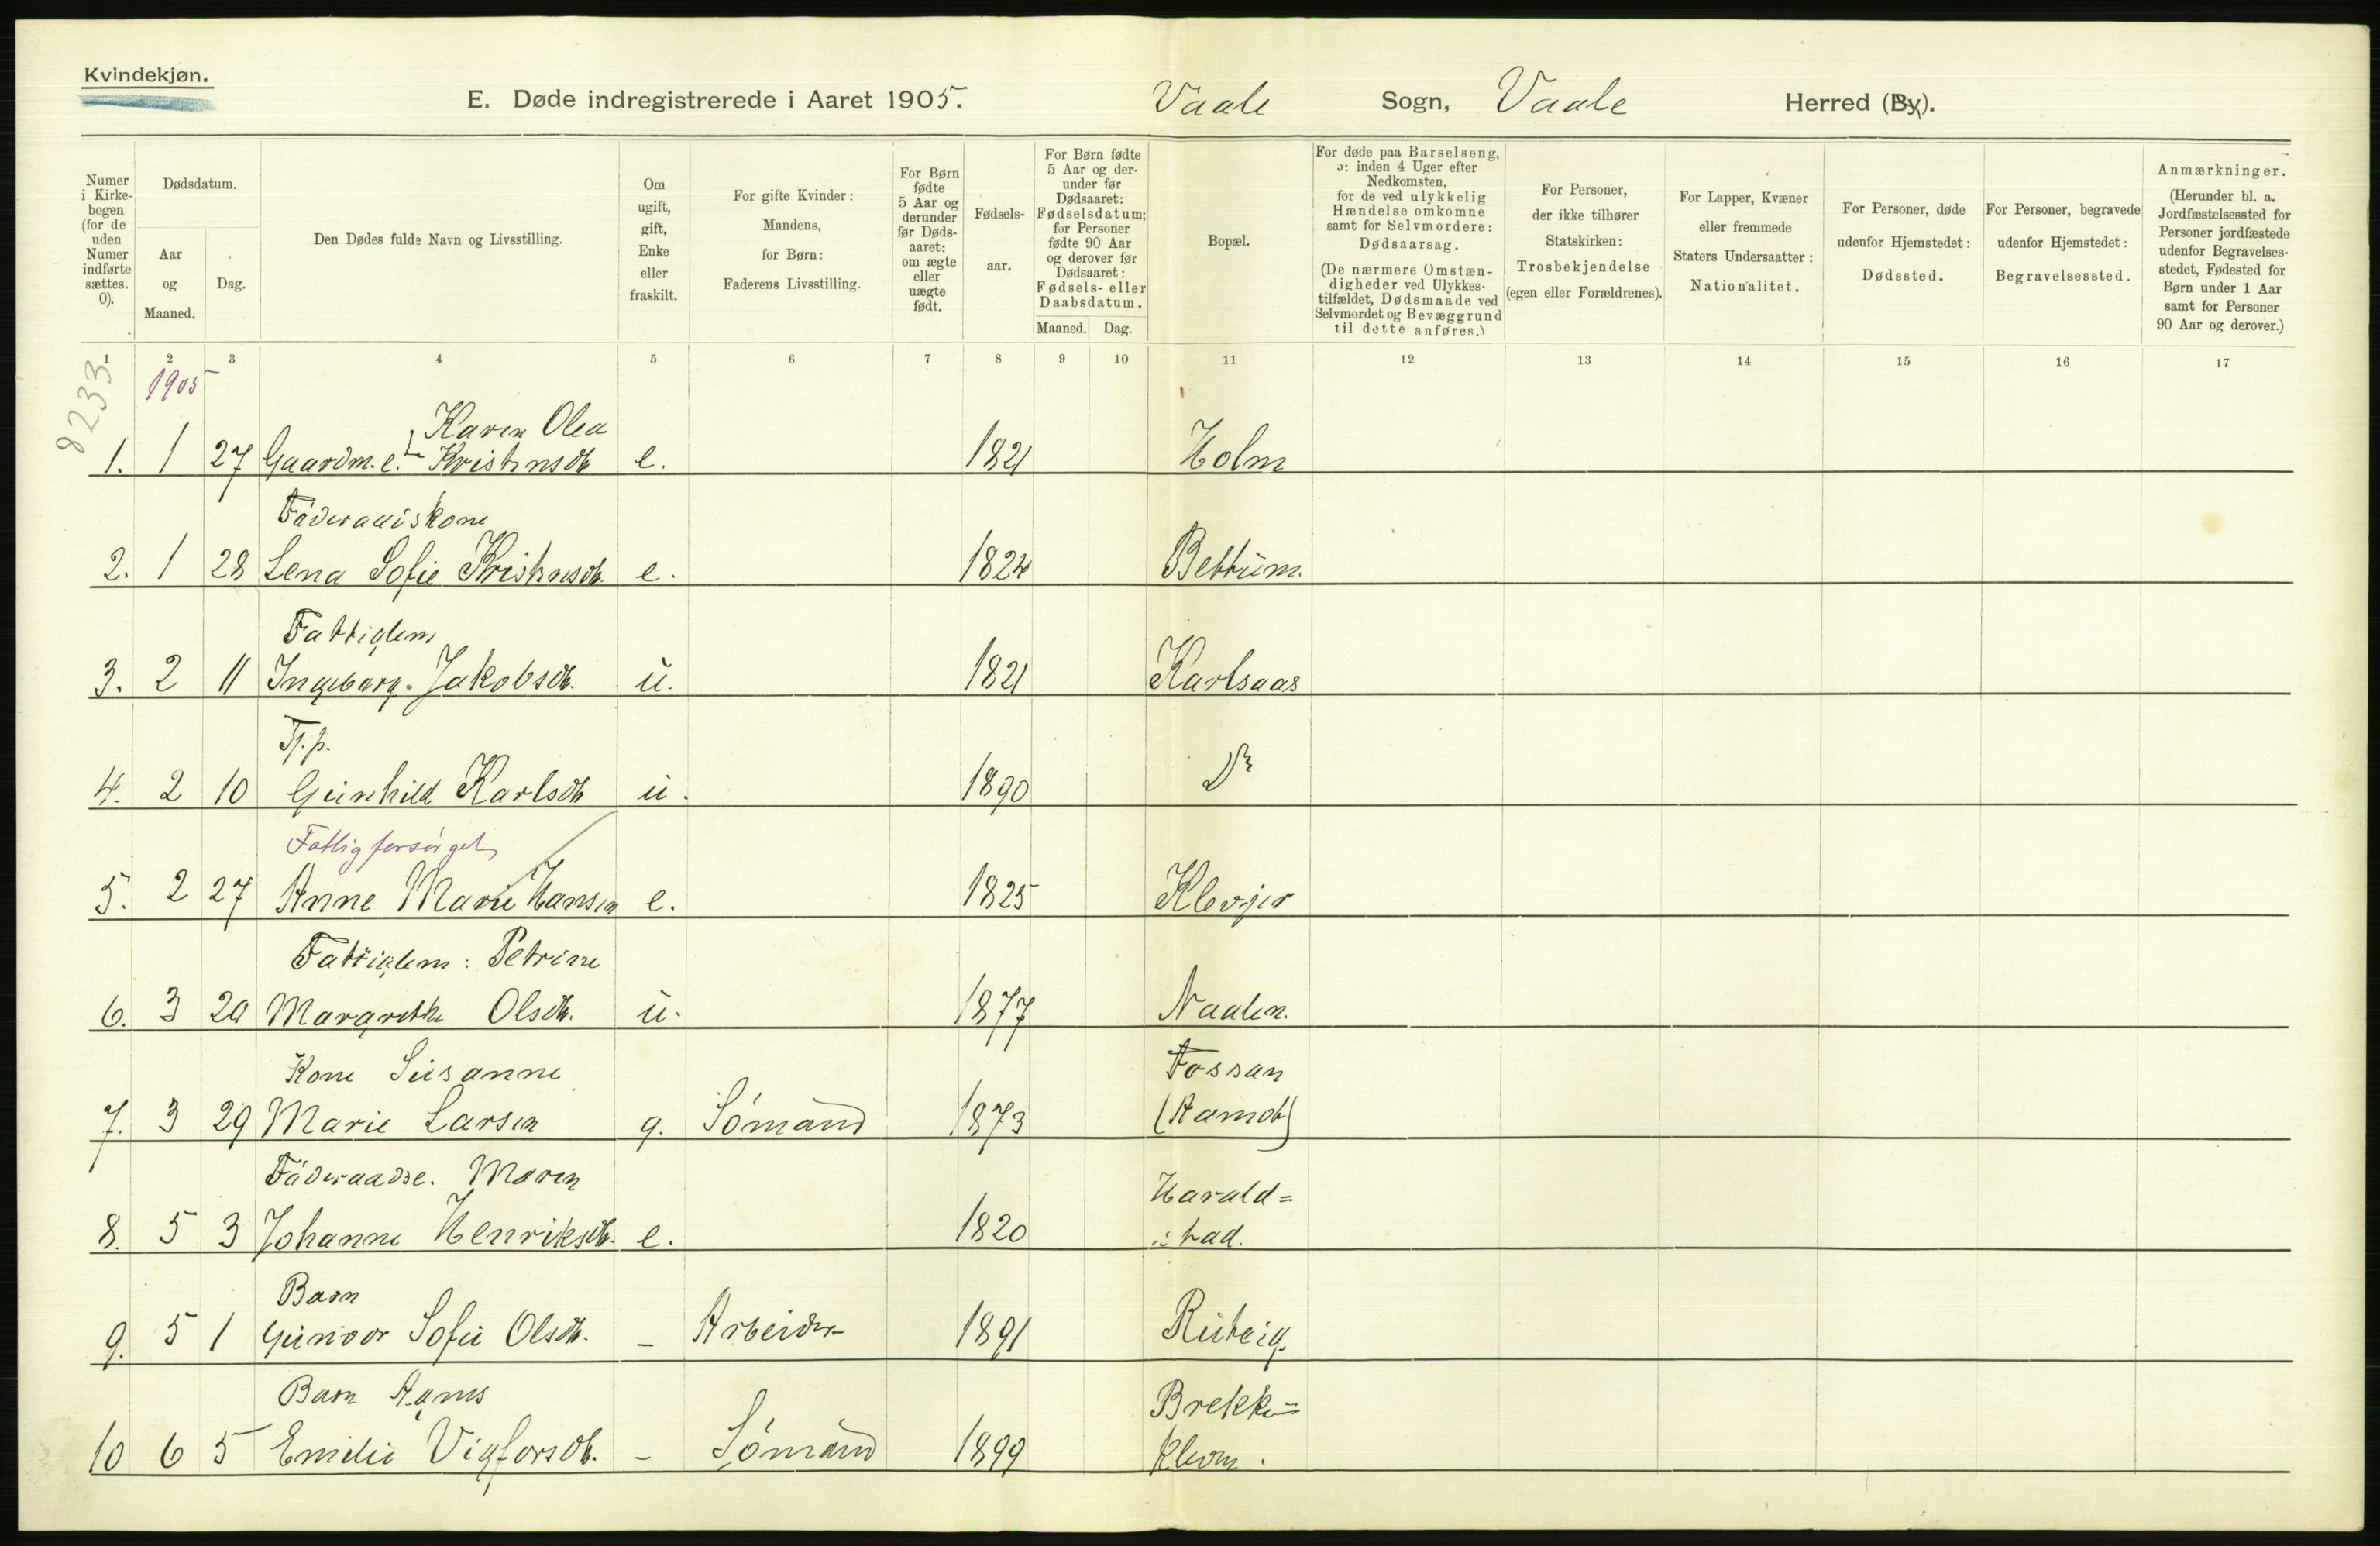 Kvindekjøn.
E. Døde indregistrerede i Aaret 1905. Vaale Sogn, Vaale Herred (By).
Numer i Kirkebogen (for de uden Numer indførte sættes. 0).
Dødsdatum.
Aar og Maaned.
Dag.
Den Dødes fulde Navn og Livsstilling.
Om ugift, gift, Enke eller fraskilt.
For gifte Kvinder: Mandens, for Børn: Faderens Livsstilling.
For Børn fødte 5 Aar og derunder før Dødsaaret: om ægte eller uægte født.
Fødselsaar.
For Børn fødte 5 Aar og derunder før Dødsaaret: Fødselsdatum; for Personer fødte 90 Aar og derover før Dødsaaret: Fødsels- eller Daabsdatum.
Maaned. Dag.
Bopæl.
For døde paa Barselseng, ɔ: inden 4 Uger efter Nedkomsten, for de ved ulykkelig Hændelse omkomne samt for Selvmordere: Dødsaarsag.
(De nærmere Omstændigheder ved Ulykkestilfældet, Dødsmaade ved Selvmordet og Bevæggrund til dette anføres.)
For Personer, der ikke tilhører Statskirken: Trosbekjendelse (egen eller Forældrenes).
For Lapper, Kvæner eller fremmede Staters Undersaatter: Nationalitet.
For Personer, døde udenfor Hjemstedet: Dødssted.
For Personer, begravede udenfor Hjemstedet: Begravelsessted.
Anmærkninger.
(Herunder bl. a. Jordfæstelsessted for Personer jordfæstede udenfor Begravelsesstedet, Fødested for Børn under 1 Aar samt for Personer 90 Aar og derover.)
1 2 3 4 5 6 7 8 9 10 11 12 13 14 15 16 17
8233
1905
Karen Olea
1. 1 27 Gaardm. e. Kristensdt e. 1821 Holm
Föderaadskone
2. 1 28 Lena Sofie Kristensdt. e. 1824 Bettum.
Fattiglem
3. 2 11 Ingeborg Jakobsdt. u. 1821 Karlsaas
Tj. p.
4. 2 10 Gunhild Karlsdt u. 1890 Do
Fattigforsörget
5. 2 27 Anne Marie Hansen e. 1825 Klevjer
Fattiglem: Petrine
6. 3 20 Margrethe Olsdt. u. 1877 Naalen.
Kone Susanne Fossan
7. 3 29 Marie Larsen g. Sömand 1873 (Aamot)
Föderaadse. Maren Harald=
8. 5 3 Johanne Henriksdt. e. 1820 stad.
Barn
9. 5 1 Gunvor Sofie Olsdt. - Arbeider 1891 Ruteig.
Barn Agnes Brekke=
10 6 5 Emilie Vigforsdt. - Sömand 1899 kleven.